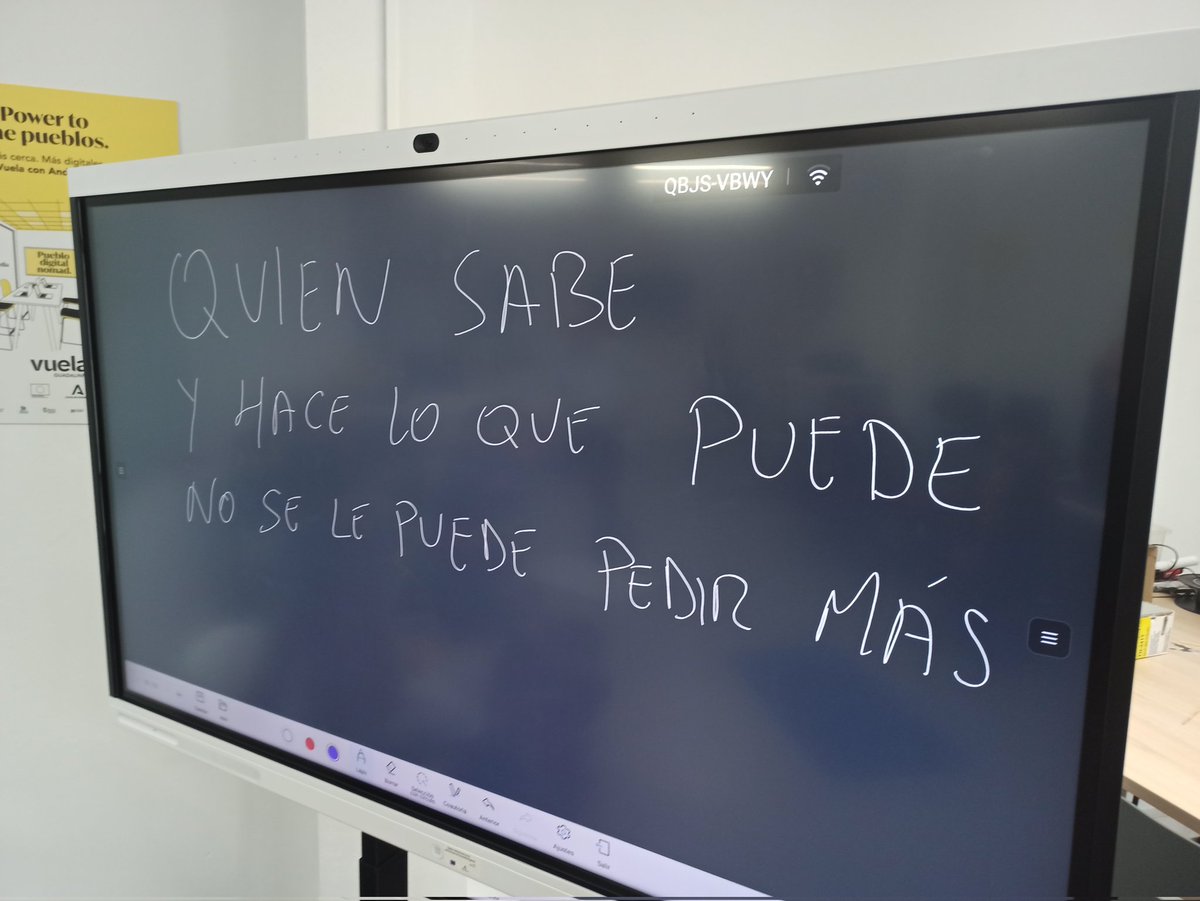 Power to
he pueblos.
ás cerca. Más digitales
Vuela con And
Pueblo
digital
nomad.
vuela
QBJS-VBWY
QUIEN SABE
Y HACE LO QUE PUEDE
NO SE LE PUEDE PEDIR MÁS
Lápiz
Borrar
Anterior
Ajustes
Salir